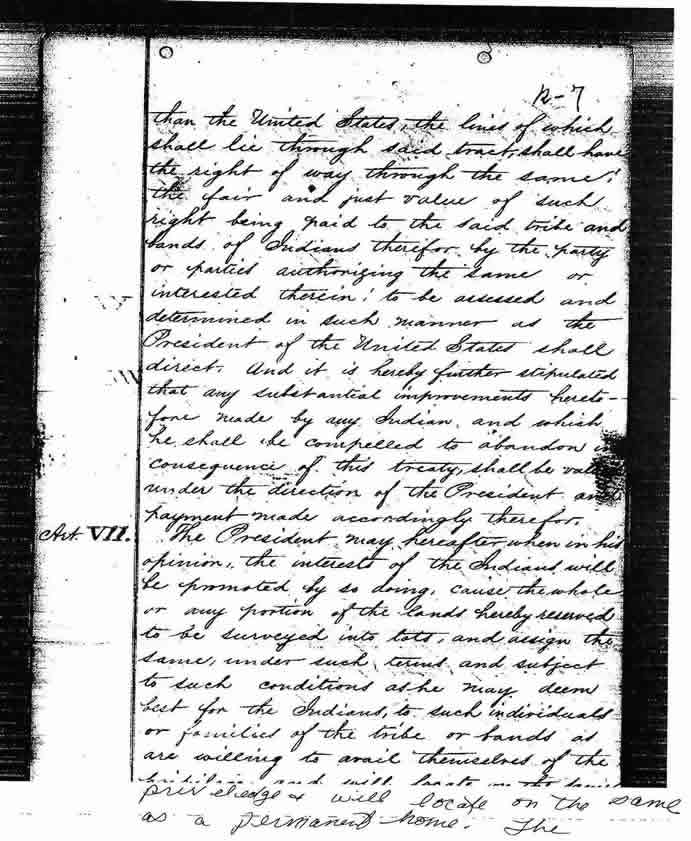 12-7
than the United States, the lines of which
shall lie through said tract, shall have
the right of way through the same;
the fair and just value of such
right being paid to the said tribe and
bands of Indians therefor by the party
or parties authorizing the same or
interested therein; to be assessed and
determined in such manner as the
President of the United States shall
direct. And it is hereby further stipulated
that any substantial improvements hereto-
fore made by any Indian, and which
he shall be compelled to abandon in
consequence of this treaty, shall be valued
under the direction of the President and
payment made accordingly therefor.
Art. VII. The President may hereafter when in his
opinion, the interests of the Indians will
be promoted by so doing, cause the whole
or any portion of the lands hereby reserved
to be surveyed into lots, and assign the
same, under such terms and subject
to such conditions as he may deem
best for the Indians, to such individuals
or families of the tribe or bands as
are willing to avail themselves of the
priveledge & will locate on the same
as a permanent home. The